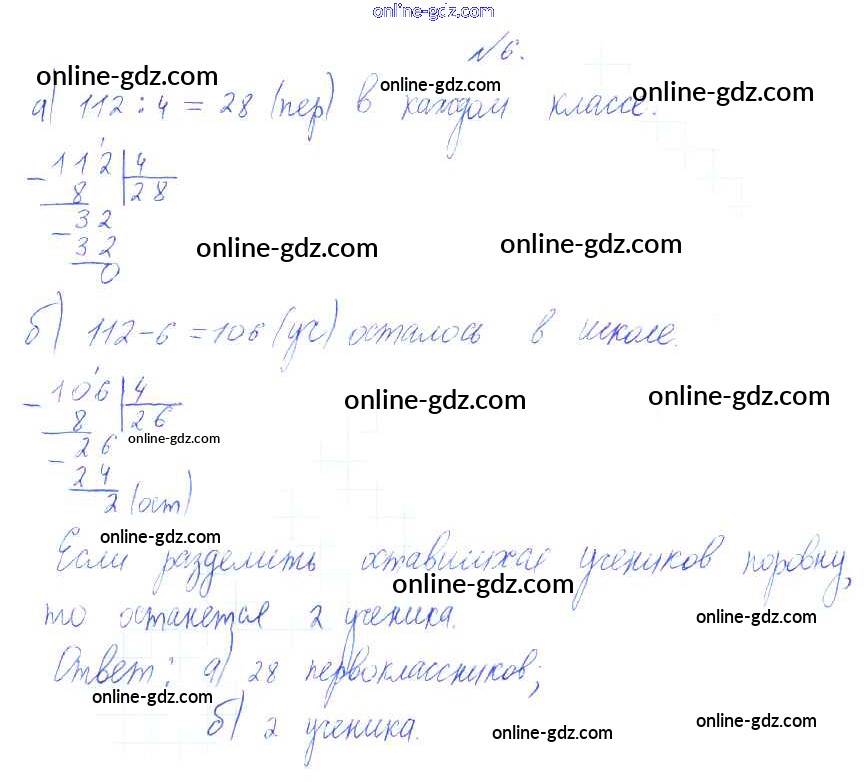 online-gdz.com
№6.
online-gdz.com online-gdz.com online-gdz.com
а) 112 : 4 = 28 (пер) в каждом классе.
112 4
8 28
32
32
0
online-gdz.com online-gdz.com
б) 112 - 6 = 106 (уч) осталось в школе.
106 4
8 26
26
24
2 (ост)
online-gdz.com online-gdz.com online-gdz.com
online-gdz.com
Если разделить оставшихся учеников поровну,
online-gdz.com
то останется 2 ученика.
online-gdz.com
Ответ: а) 28 первоклассников;
online-gdz.com
б) 2 ученика.
online-gdz.com online-gdz.com